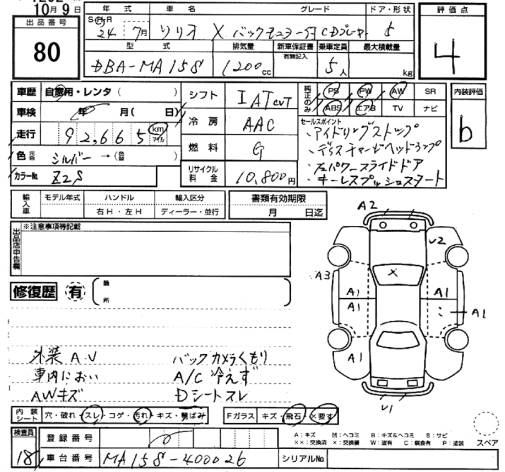 10月9日
出品番号 80
年式 車名 グレード ドア・形状
24年7月 ソリオ X バックモニター付CDプレーヤー 5
型式 排気量 新車保証書 乗車定員 最大積載量
有無記入
DBA-MA15S 1200cc 5人 kg
評価点 4
車歴 自家用・レンタ( )
車検 年( 月( )日)
走行 92,665 km マイル
色 元色 シルバー→( 色)
カラーNo. Z2S
シフト IAT CVT
冷房 AAC
燃料 G
リサイクル料金 10,800円
純正のみ PS PW AW SR
ABS エアB TV ナビ
セールスポイント
・アイドリングストップ
・ディスチャージヘッドランプ
・左パワースライドドア
・キーレスプッシュスタート
内装評価 b
輸入車 モデル年式 ハンドル 輸入区分
年 右H・左H ディーラー・並行
書類有効期限
月 日迄
出品店申告欄 ※注意事項等記載
修復歴 有 箇所
外装A・U バックカメラくもり
車内におい A/C冷えず
AWキズ Dシートスレ
A2
U2
A3
A1 A1
A1 A1
A1
U1
内装シート 穴・破れ・スレ・コゲ・汚れ・キズ・黄ばみ
Fガラス キズ・飛石・×要す
検査員 18
登録番号
車台番号 MA15S-400026
シリアルNo.
A:キズ B:キズ&ヘコミ S:サビ
スペア